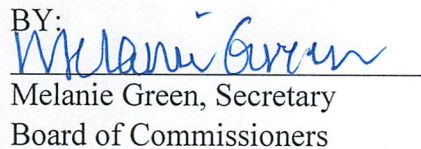 BY:
Melanie Green
Melanie Green, Secretary
Board of Commissioners